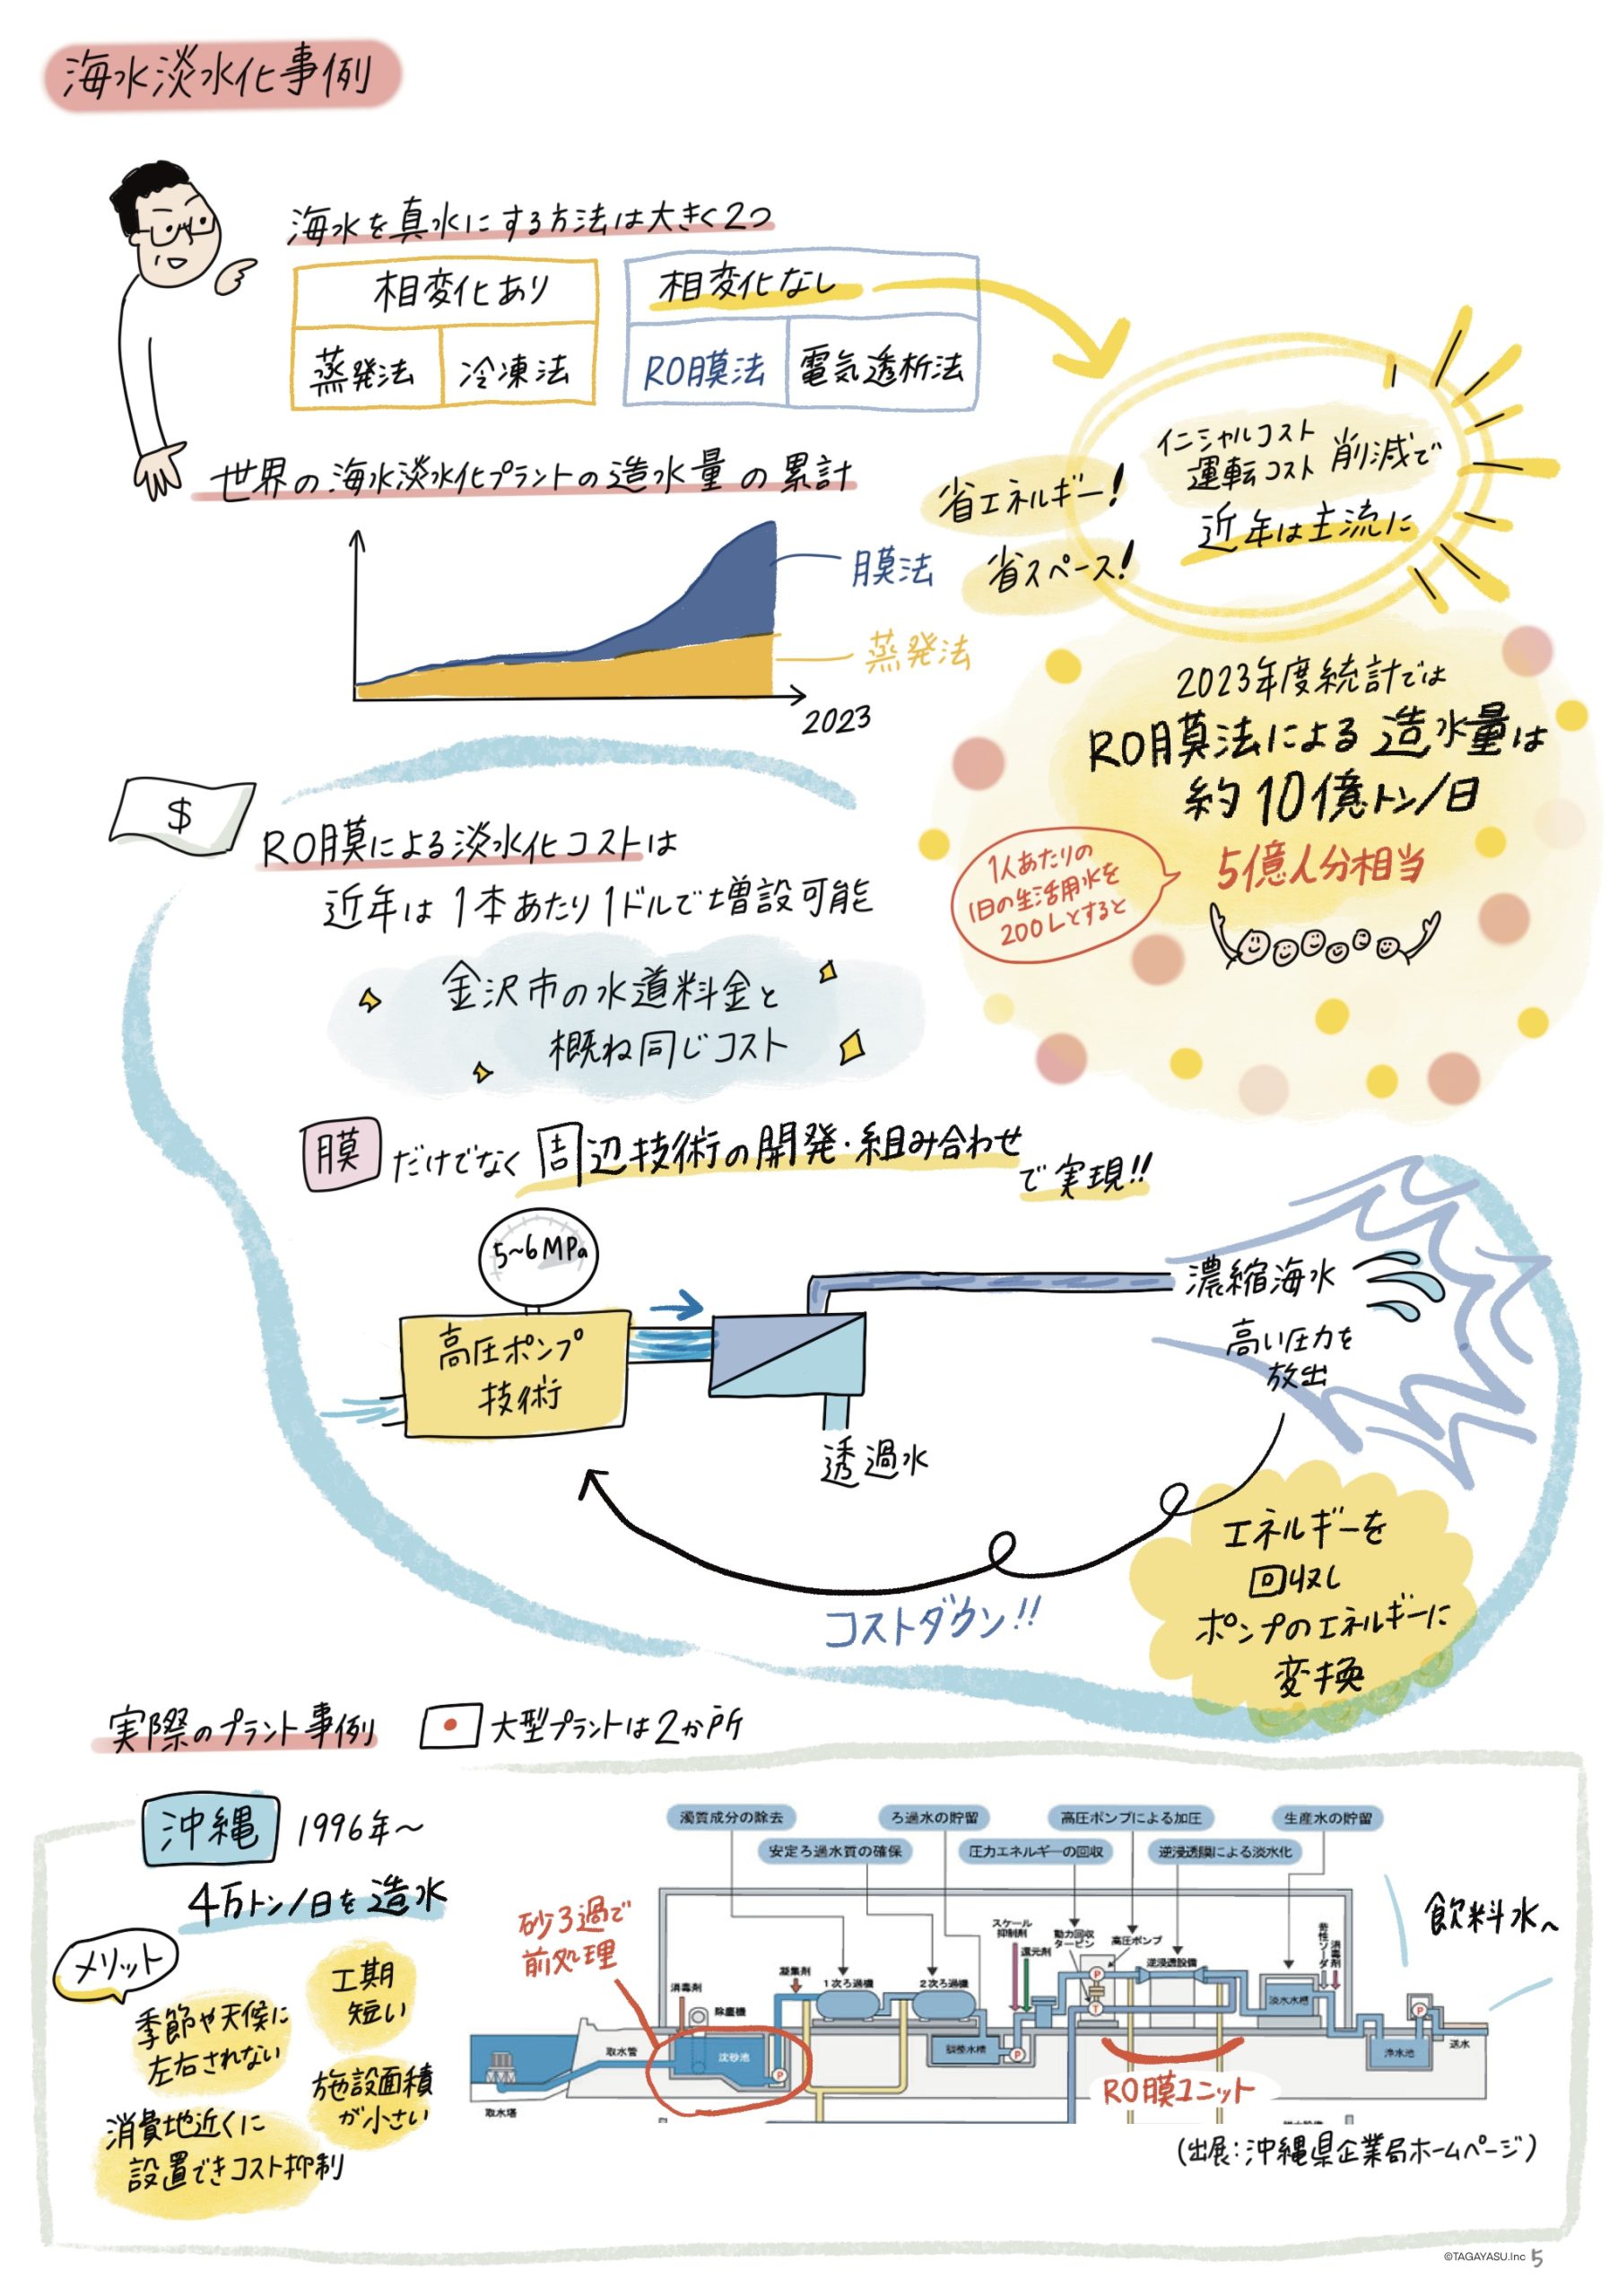 海水淡水化事例
海水を真水にする方法は大きく2つ
相変化あり
蒸発法
冷凍法
相変化なし
RO膜法
電気透析法
省エネルギー!
省スペース!
イニシャルコスト
運転コスト 削減で
近年は主流に
世界の海水淡水化プラントの造水量の累計
膜法
蒸発法
2023
2023年度統計では
RO膜法による造水量は
約10億トン/日
5億人分相当
1人あたりの
1日の生活用水を
200Lとすると
$
RO膜による淡水化コストは
近年は1本あたり1ドルで増設可能
金沢市の水道料金と
概ね同じコスト
膜だけでなく周辺技術の開発・組み合わせ
で実現!!
5~6MPa
高圧ポンプ
技術
透過水
濃縮海水
高い圧力を
放出
エネルギーを
回収し
ポンプのエネルギーに
変換
コストダウン!!
実際のプラント事例
大型プラントは2か所
沖縄 1996年~
4万トン/日を造水
メリット
季節や天候に
左右されない
工期
短い
施設面積
が小さい
消費地近くに
設置できコスト抑制
砂ろ過で
前処理
濁質成分の除去
ろ過水の貯留
高圧ポンプによる加圧
生産水の貯留
安定ろ過水質の確保
圧力エネルギーの回収
逆浸透膜による淡水化
スケール
抑制剤
還元剤
動力回収
タービン
高圧ポンプ
逆浸透設備
苛性ソーダ
消毒剤
消毒剤
除塵機
凝集剤
1次ろ過機
2次ろ過機
淡水水槽
取水管
沈砂池
調整水槽
浄水池
送水
取水塔
P
P
P
T
P
RO膜ユニット
飲料水へ
(出展:沖縄県企業局ホームページ)
©TAGAYASU.Inc 5